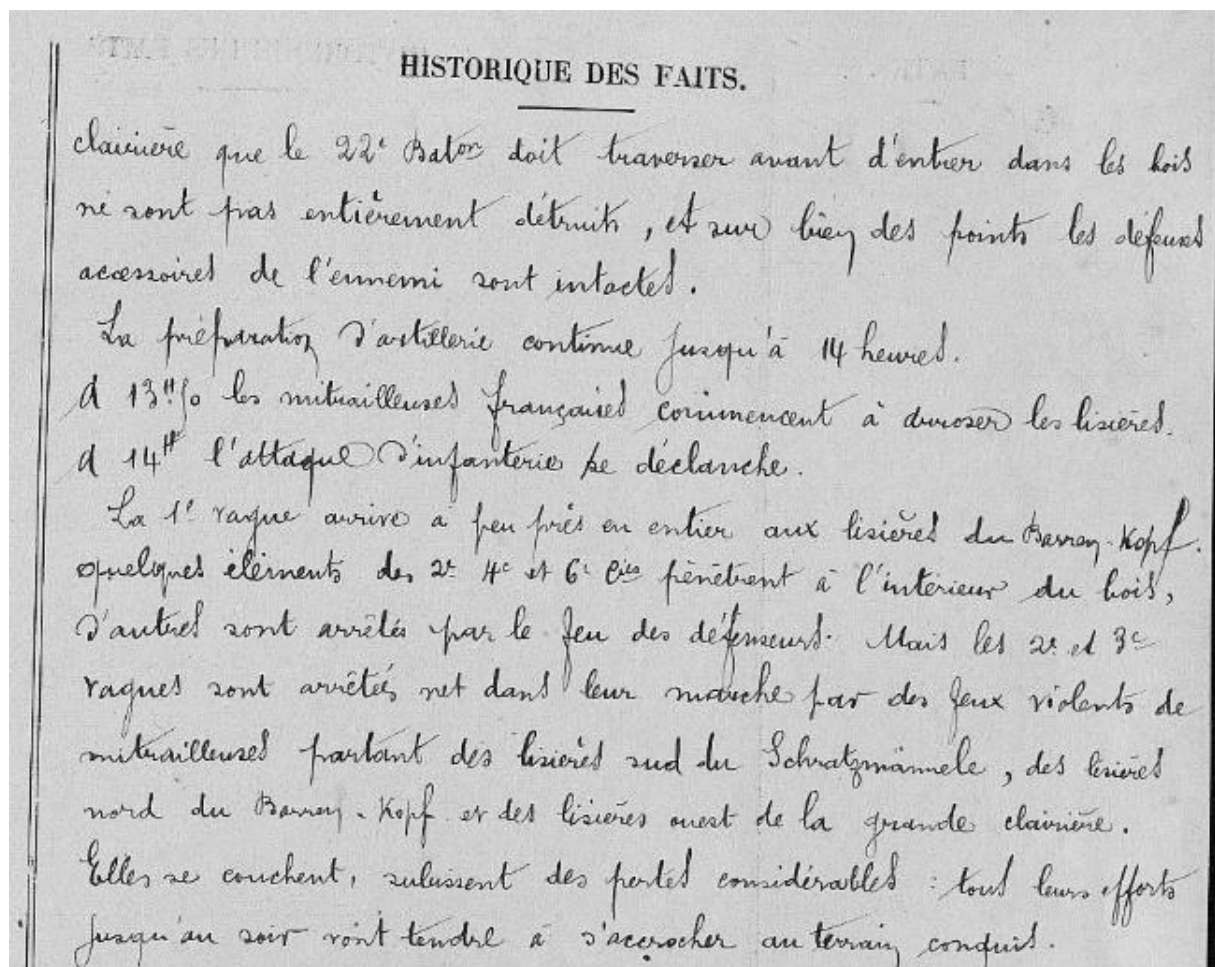 HISTORIQUE DES FAITS.
clairière que le 22e Baton doit traverser avant d'entrer dans les bois
ne sont pas entièrement détruits, et sur bien des points les défenses
accessoires de l'ennemi sont intactes.
La préparation d'artillerie continue jusqu'à 14 heures.
A 13H50 les mitrailleuses françaises commencent à arroser les lisières.
A 14H l'attaque d'infanterie se déclanche.
La 1e vague arrive à peu près en entier aux lisières du Barren-Kopf.
Quelques éléments des 2e 4e et 6e Cies pénètrent à l'intérieur du bois,
d'autres sont arrêtés par le feu des défenseurs. Mais les 2e et 3e
vagues sont arrêtées net dans leur marche par des feux violents de
mitrailleuses partant des lisières sud du Schratzmännele, des lisières
nord du Barren-Kopf et des lisières ouest de la grande clairière.
Elles se couchent, subissent des pertes considérables : tous leurs efforts
jusqu'au soir vont tendre à s'accrocher au terrain conquis.